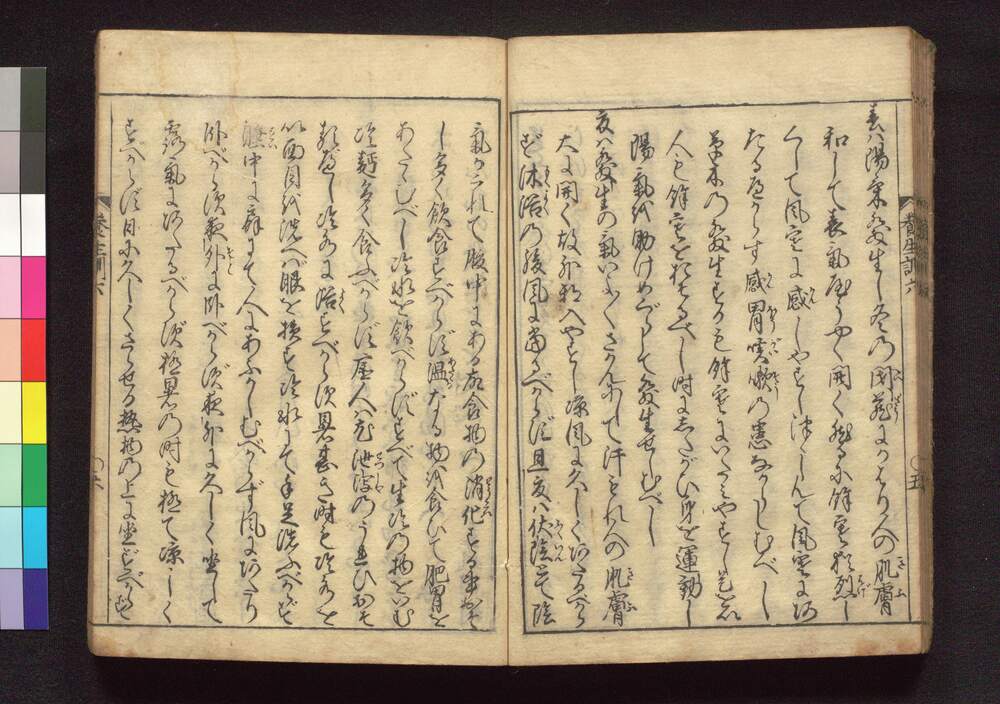 春ハ陽氣發生し冬の閉蔵にかはり人の肌膚
和して表氣やうやく開く然るに餘寒猶烈し
くして風寒に感しやすしつゝしんて風寒にあ
たるへからす感冒咳嗽の患なからしむべし
草木の發生するも餘寒にいたみやすし是を以
人も餘寒をおそるへし時にしたがひ身を運動し
陽氣を助けめぐらして發生せしむべし
夏ハ發生の氣いよ〳〵さかんにして汗もれ人の肌膚
大に開く故外邪入やすし凉風に久しくあたるべから
ず沐浴の後風に當るべからず且夏ハ伏陰とて陰
養生訓六
○五
氣かくれて腹中にある故食物の消化する事おそ
し多く飲食すべからず温なる物を食ひて脾胃を
あたゝむべし冷水を飲べからずすべて生冷の物をいむ
冷麪多く食ふべからず虚人ハ尤泄瀉のうれひおそ
るべし冷水に浴すべからず暑甚き時も冷水を
以面目を洗へバ眼を損ず冷水にて手足洗ふべからず
睡中に扇にて人にあふがしむべからず風にあたり
臥べからず夜外に臥べからず夜外に久しく坐して
露氣にあたるべからず極暑の時も極て凉しく
すべからず日に久しくさらせる熱物の上に坐すべから
養生訓六
○六